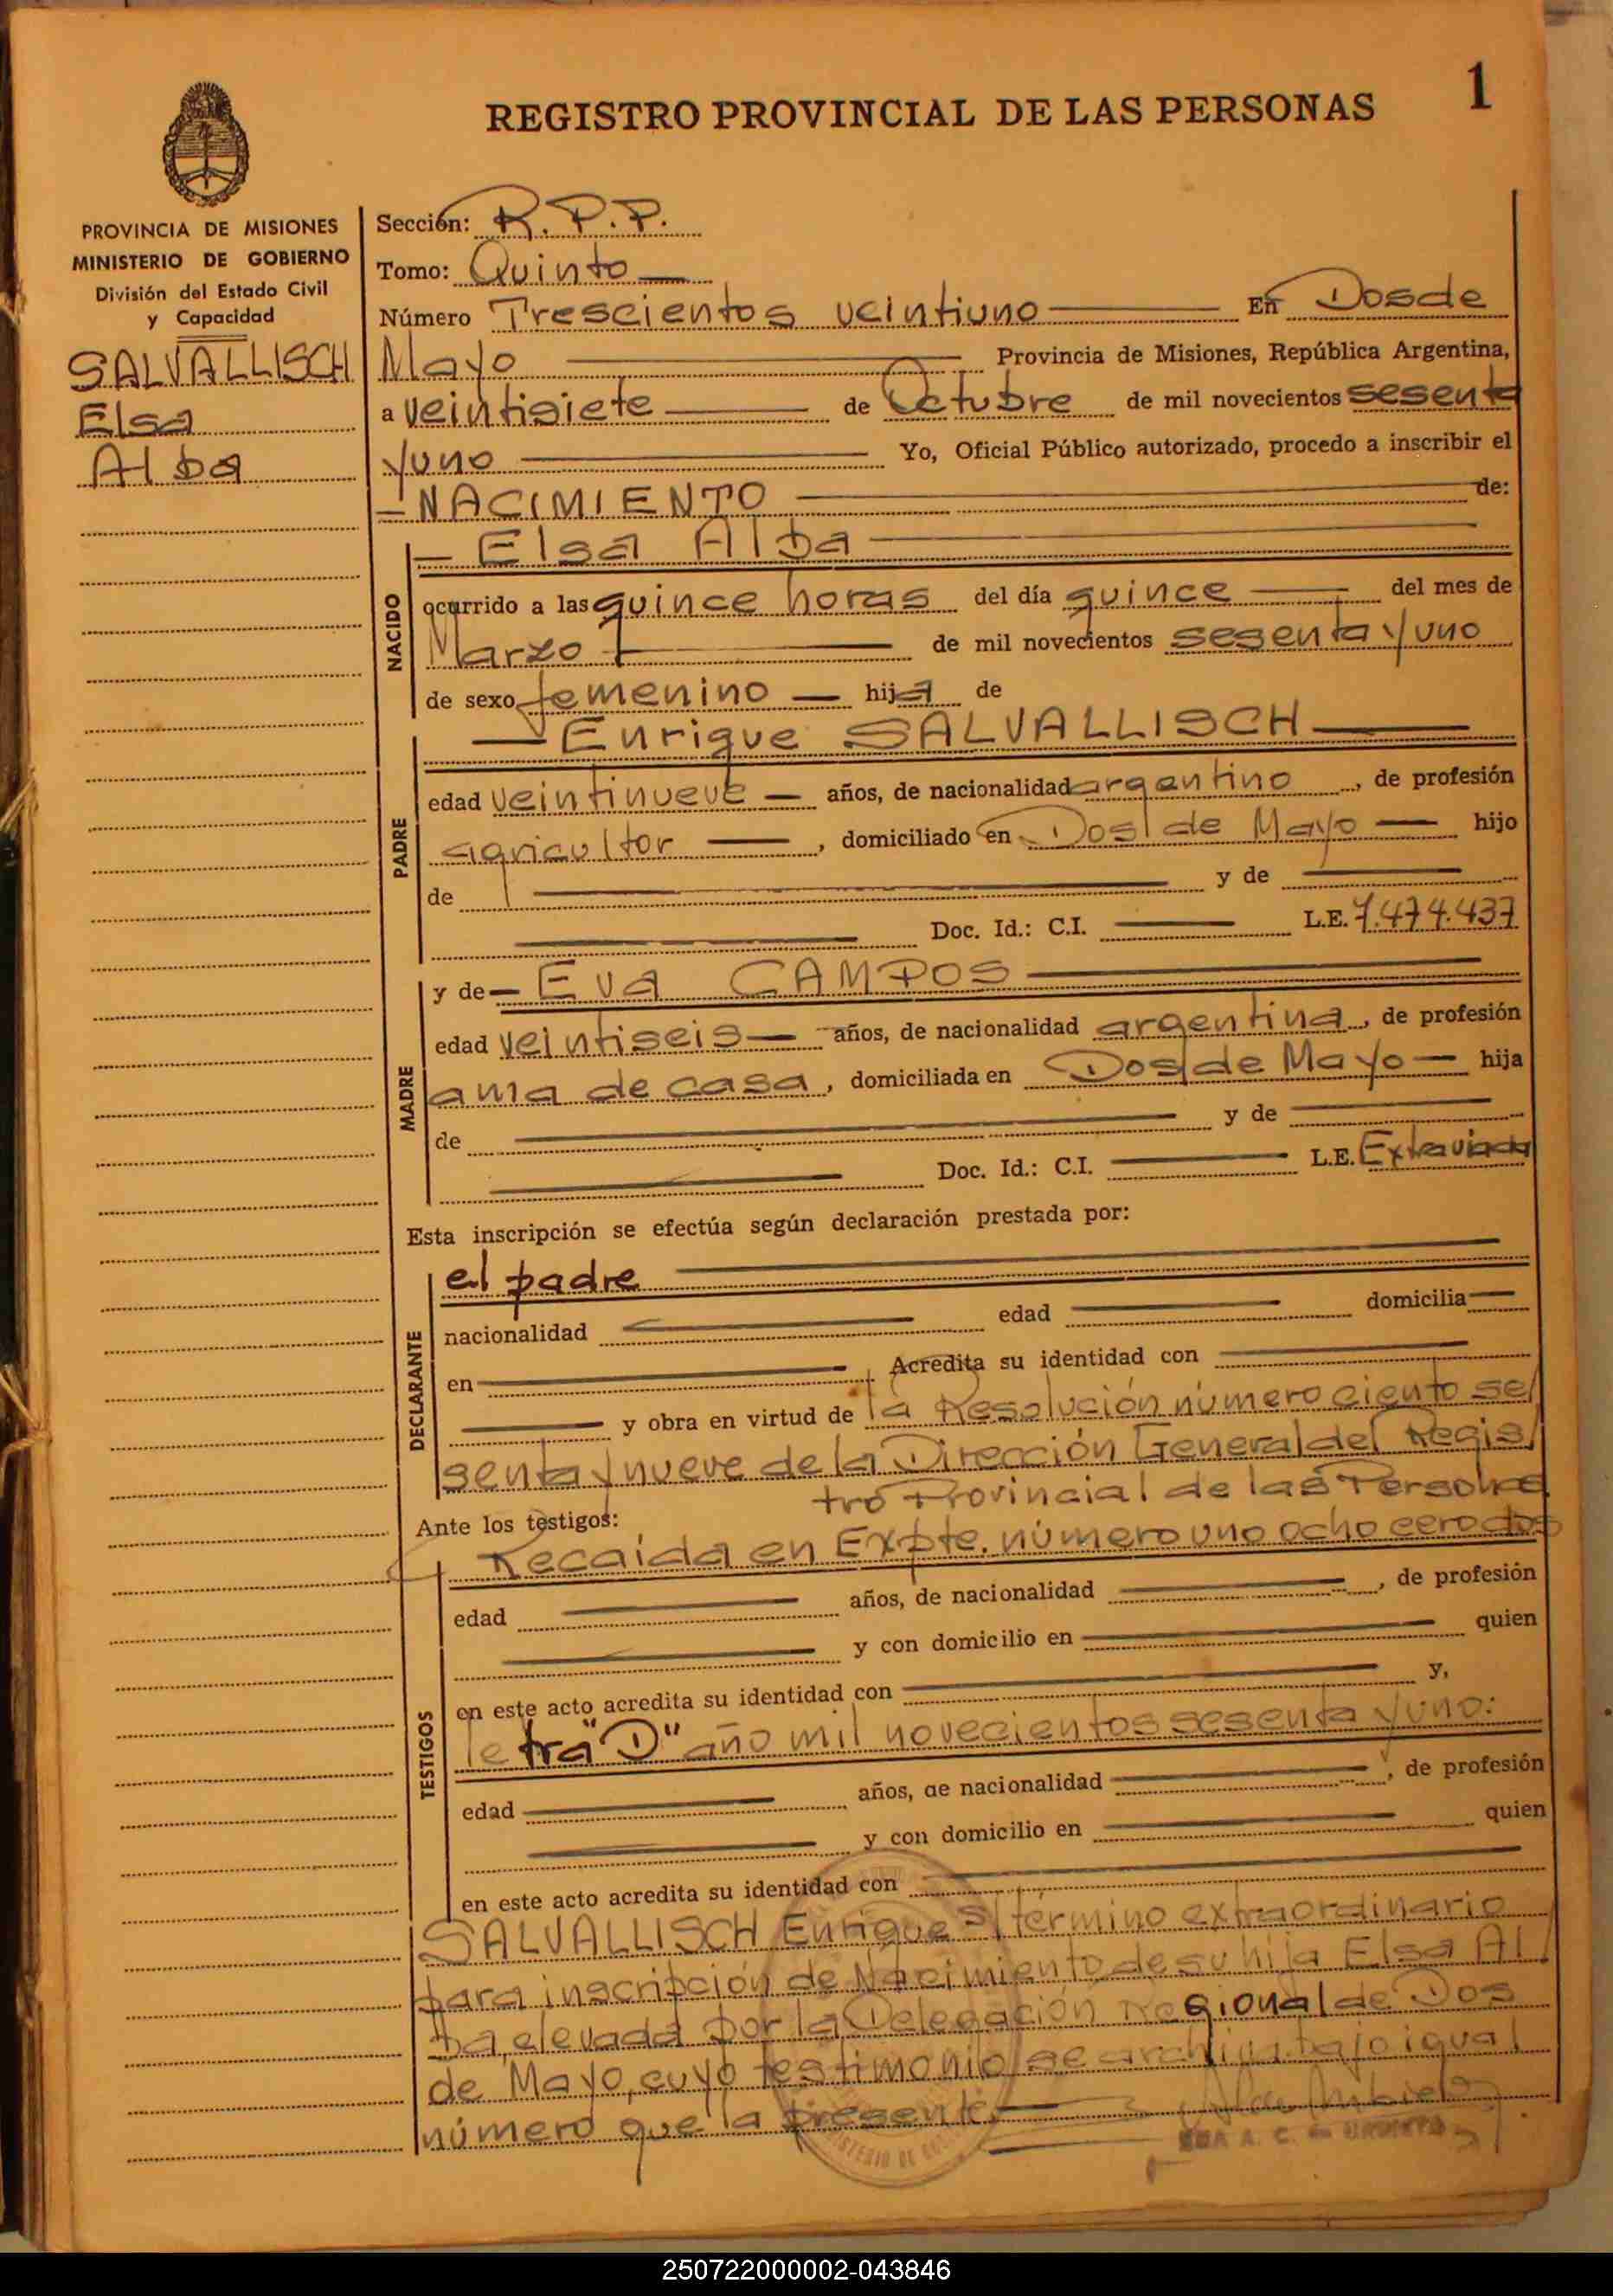 REGISTRO PROVINCIAL DE LAS PERSONAS
1
PROVINCIA DE MISIONES
MINISTERIO DE GOBIERNO
División del Estado Civil
y Capacidad
SALVALLISCH
Elsa
Alba
Sección: R.P.P.
Tomo: Quinto
Número Trescientos veintiuno En Dos de
Mayo Provincia de Misiones, República Argentina,
a veintisiete de Octubre de mil novecientos sesenta
y uno Yo, Oficial Público autorizado, procedo a inscribir el
NACIMIENTO de:
NACIDO
Elsa Alba
ocurrido a las quince horas del día quince del mes de
Marzo de mil novecientos sesenta y uno
de sexo femenino hija de
PADRE
Enrique SALVALLISCH
edad veintinueve años, de nacionalidad argentino, de profesión
agricultor, domiciliado en Dos de Mayo hijo
de y de
Doc. Id.: C.I. L.E. 7.474.437
MADRE
y de Eva CAMPOS
edad veintiseis años, de nacionalidad argentina, de profesión
ama de casa, domiciliada en Dos de Mayo hija
de y de
Doc. Id.: C.I. L.E. Extraviada
Esta inscripción se efectúa según declaración prestada por:
DECLARANTE
el padre
nacionalidad edad domicilia
en Acredita su identidad con
y obra en virtud de la Resolución número ciento se/
senta y nueve de la Dirección General del Regis/
tro Provincial de las Personas
Ante los testigos:
TESTIGOS
Recaída en Expte. número uno ocho cero dos
edad años, de nacionalidad , de profesión
y con domicilio en quien
en este acto acredita su identidad con y,
letra "D" año mil novecientos sesenta y uno:
edad años, de nacionalidad , de profesión
y con domicilio en quien
en este acto acredita su identidad con
SALVALLISCH Enrique s/término extraordinario
para inscripción de Nacimiento de su hija Elsa Al/
ba, elevada por la Delegación Regional de Dos
de Mayo, cuyo testimonio se archiva bajo igual
número que la presente
A. C. de URBIETA
250722000002-043846